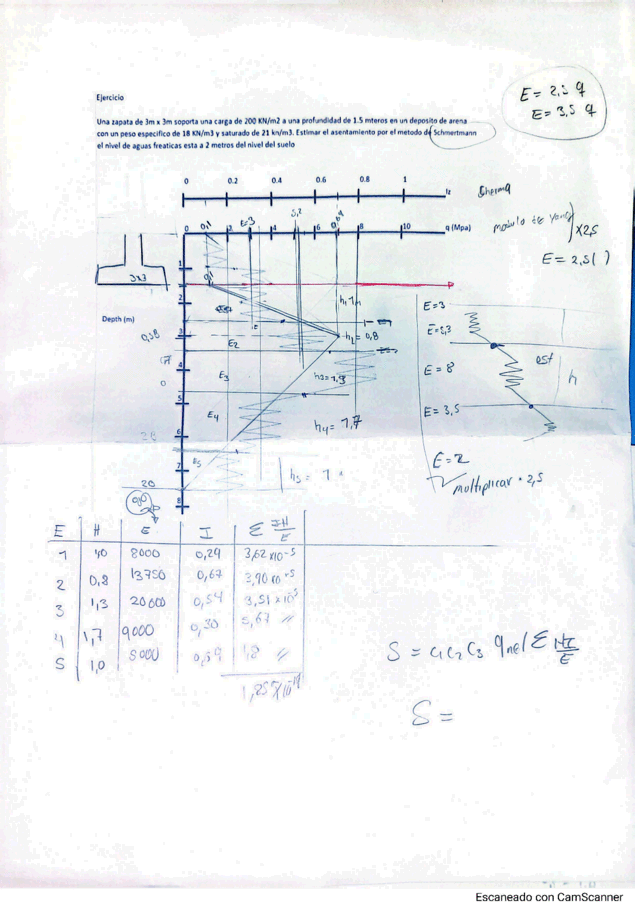 Ejercicio
E = 2,5 q
E = 3,5 q
Una zapata de 3m x 3m soporta una carga de 200 KN/m2 a una profundidad de 1.5 mteros en un deposito de arena
con un peso especifico de 18 KN/m3 y saturado de 21 kn/m3. Estimar el asentamiento por el metodo de Schmertmann
el nivel de aguas freaticas esta a 2 metros del nivel del suelo
0 0.2 0.4 0.6 0.8 1
Iz
0,1 E=3 5,2 0,69
0 2 4 6 8 10 q (Mpa)
modulo de Yong x 2,5
E = 2,5( )
3x3
0,1
1
2
3
4
5
6
7
8
Depth (m)
h1 1m
h2 = 0,8
E2
E3
h3 = 1,3
E4
h4 = 1,7
E5
h5 = 1
20
E = 3
E = 8
h
E = 3,5
E = 2
multiplicar * 2,5
E H E I Σ IH/E
1 1,0 8000 0,29 3,62 x10-5
2 0,8 13750 0,67 3,90 x10-5
3 1,3 20600 0,54 3,51 x10-5
4 1,7 9000 0,30 5,67 //
5 1,0 5000 0,09 1,8 //
S = C1 C2 C3 qnet Σ HI/E
S =
Escaneado con CamScanner